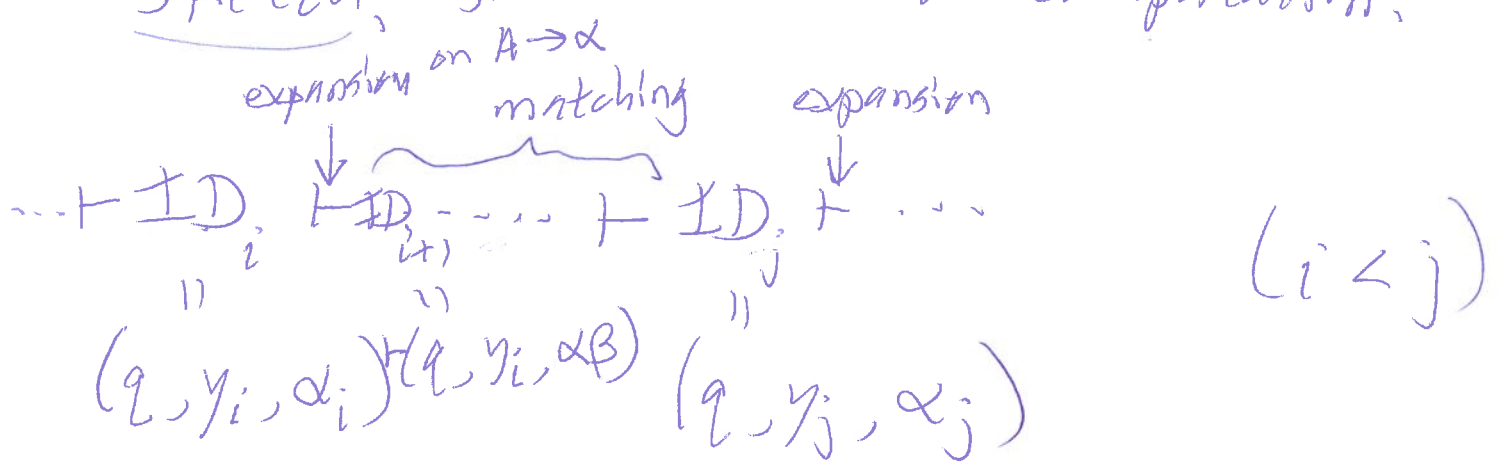 expansion on A → α
matching expansion
... ⊢ ID_i ⊢ ID_{i+1} ..... ⊢ ID_j ⊢ ... (i < j)
(q, y_i, α_i) ⊢ (q, y_i, αβ) (q, y_j, α_j)